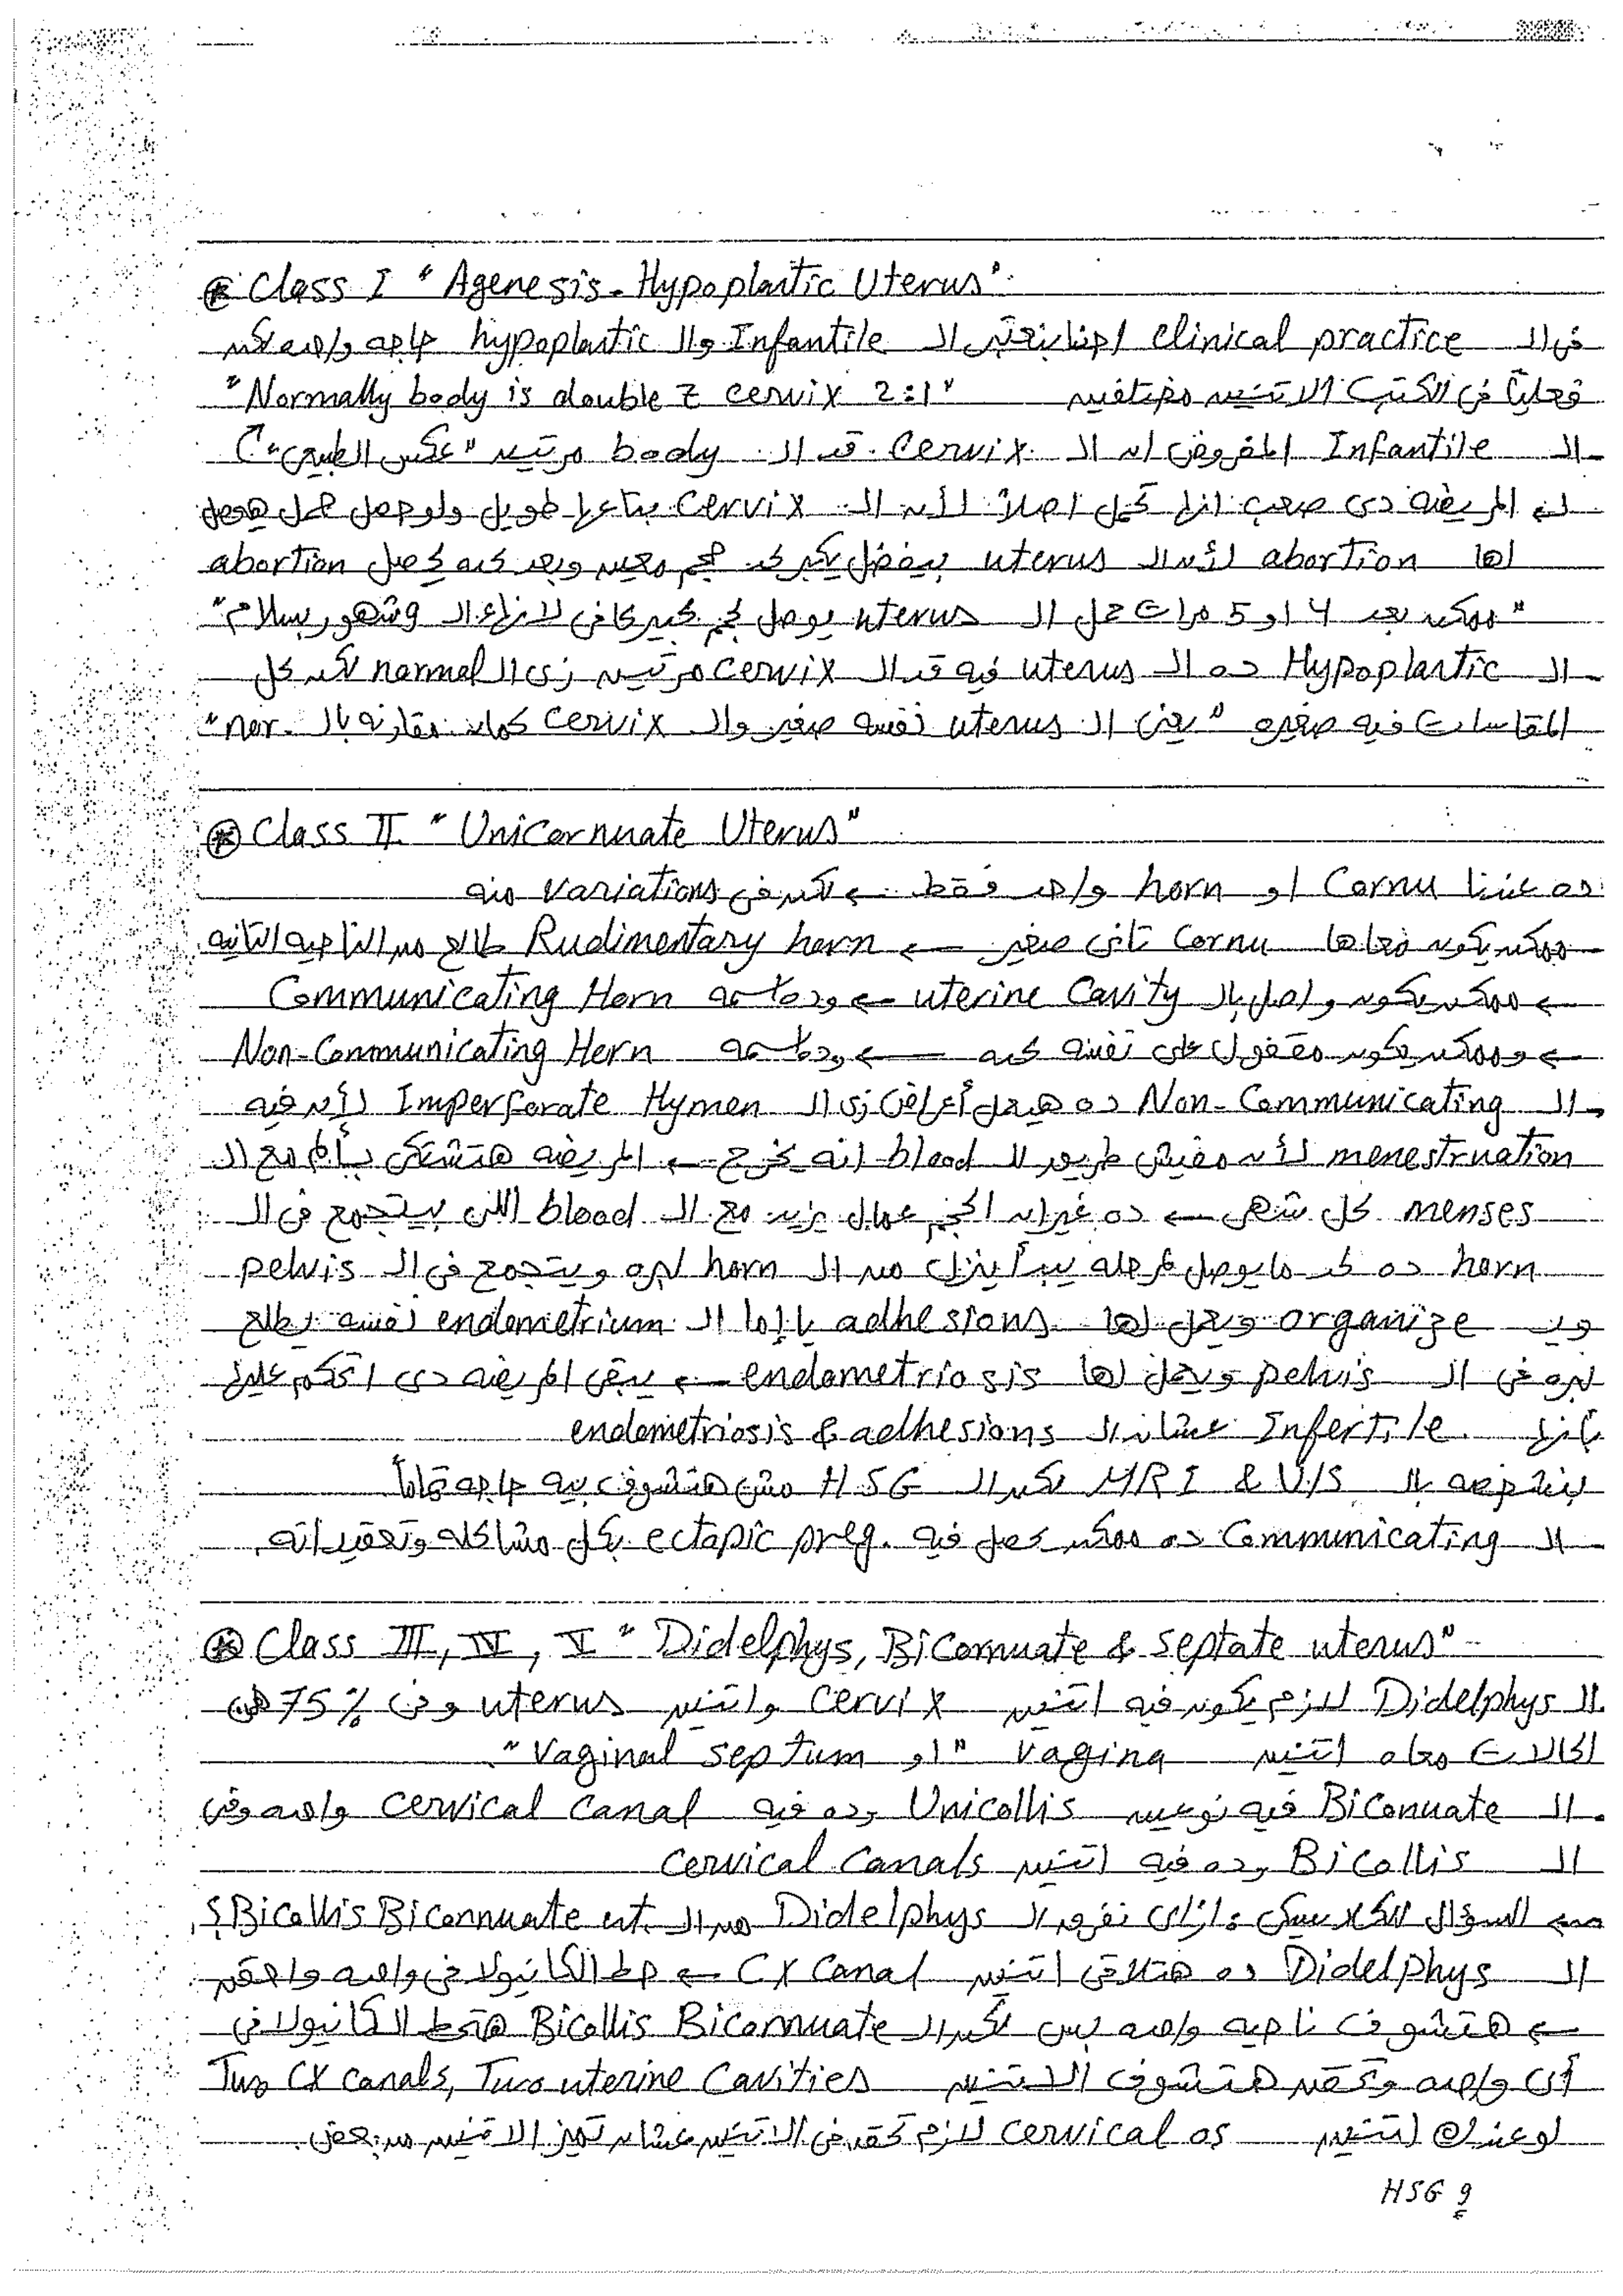 * Class I "Agenesis - Hypoplastic Uterus"
فى الـ clinical practice احنا بنعتبر الـ Infantile والـ hypoplastic حاجه واحده لكن
فعلياً فى الكتب الاتنين مختلفين "Normally body is double z cervix 2:1"
- الـ Infantile المفروض ان الـ cervix قد الـ body مرتين "عكس الطبيعى"
المريضه دى صعب انها تحمل اصلاً لأن الـ cervix بتاعها طويل ولو حصل حمل هيحصل
لها abortion لأن الـ uterus بيفضل يكبر لحد حجم معين وبعد كده يحصل abortion
"ممكن بعد 4 او 5 مرات حمل الـ uterus يوصل لحجم كبير كافى لانهاء الـ 9 شهور بسلام"
- الـ Hypoplastic ده الـ uterus فيه قد الـ cervix مرتين زى الـ normal لكن كل
المقاسات فيه صغيره "يعنى الـ uterus نفسه صغير والـ cervix كمان مقارنه بالـ nor."
* Class II "Unicornuate Uterus"
ده عندنا Cornu او horn واحد فقط ← لكن فى variations منه
- ممكن يكون معاها Cornu تانى صغير ← Rudimentary horn طالع من الناحيه التانيه
← ممكن يكون واصل بالـ uterine Cavity ← وده اسمه Communicating Horn
← وممكن يكون مقفول على نفسه كده ← وده اسمه Non-Communicating Horn
- الـ Non-Communicating ده هيعمل أعراض زى الـ Imperforate Hymen لأن فيه
menestruation لأن مفيش طريق للـ blood انه يخرج ← المريضه هتشتكى بألم مع الـ
menses كل شهر ← ده غير ان الحجم عمال يزيد مع الـ blood اللى بيتجمع فى الـ
horn ده لحد ما يوصل لمرحله يبدأ ينزل من الـ horn لبره ويتجمع فى الـ pelvis
ويـ organize ويعمل لها adhesions يا إما الـ endometrium نفسه يطلع
لبره فى الـ pelvis ويعمل لها endometriosis ← يبقى المريضه دى اتحكم عليها
بأنها Infertile عشان الـ endometriosis & adhesions
بنشخصه بالـ MRI & U/S لكن الـ HSG مش هتشوف بيه حاجه تماماً
- الـ Communicating ده ممكن يحصل فيه ectopic preg. بكل مشاكله وتعقيداته.
* Class III, IV, V "Didelphys, Bicornuate & septate uterus"
الـ Didelphys لازم يكون فيه اتنين cervix واتنين uterus وفى 75% من
الحالات معاه اتنين vagina "او Vaginal septum".
- الـ Biconuate فيه نوعين Unicollis وده فيه cervical canal واحده وفى
الـ Bicollis وده فيه اتنين cervical canals
← السؤال الكلاسيكى: ازاى نفرق الـ Didelphys من الـ Bicollis Bicornuate ut.؟
الـ Didelphys ده هتلاقى اتنين CX Canal ← حط الكانيولا فى واحده واحقن
← هتشوف ناحيه واحده بس لكن الـ Bicollis Bicornuate هتحط الكانيولا فى
أى واحده وتحقن هتشوف الاتنين Two CX canals, Two uterine Cavities
لو عندك اتنين cervical os لازم تحقن فى الاتنين عشان تميز الاتنين من بعض.
HSG 9